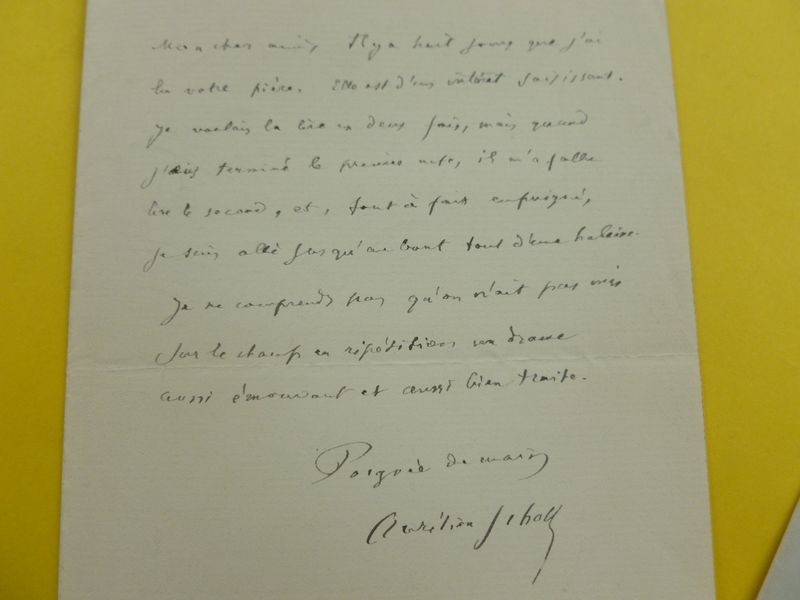 Mon cher ami, Il y a huit jours que j'ai
lu votre pièce. Elle est d'un intérêt saisissant.
Je voulais la lire en deux fois, mais quand
j'eus terminé le premier acte, il m'a fallu
lire le second, et, tout à fait empoigné,
je suis allé jusqu'au bout tout d'une haleine.
Je ne comprends pas qu'on n'ait pas mis
sur le champ en répétitions un drame
aussi émouvant et aussi bien traité.
Poignée de main
Aurélien Scholl